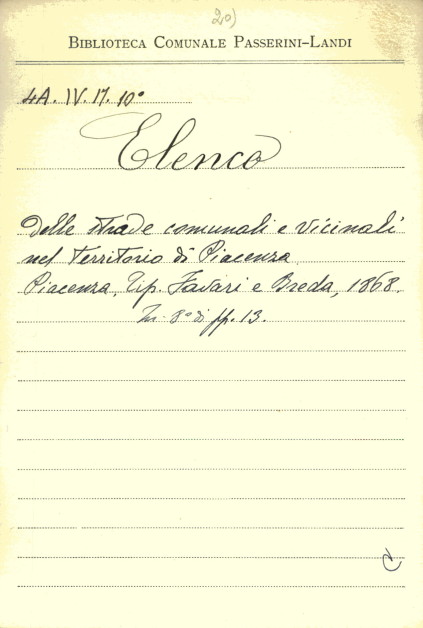 20)
BIBLIOTECA COMUNALE PASSERINI-LANDI
4A. IV. 17. 10°
Elenco
delle strade comunali e vicinali
nel Territorio di Piacenza
Piacenza, Tip. Favari e Breda, 1868.
In-8° di pp. 13.